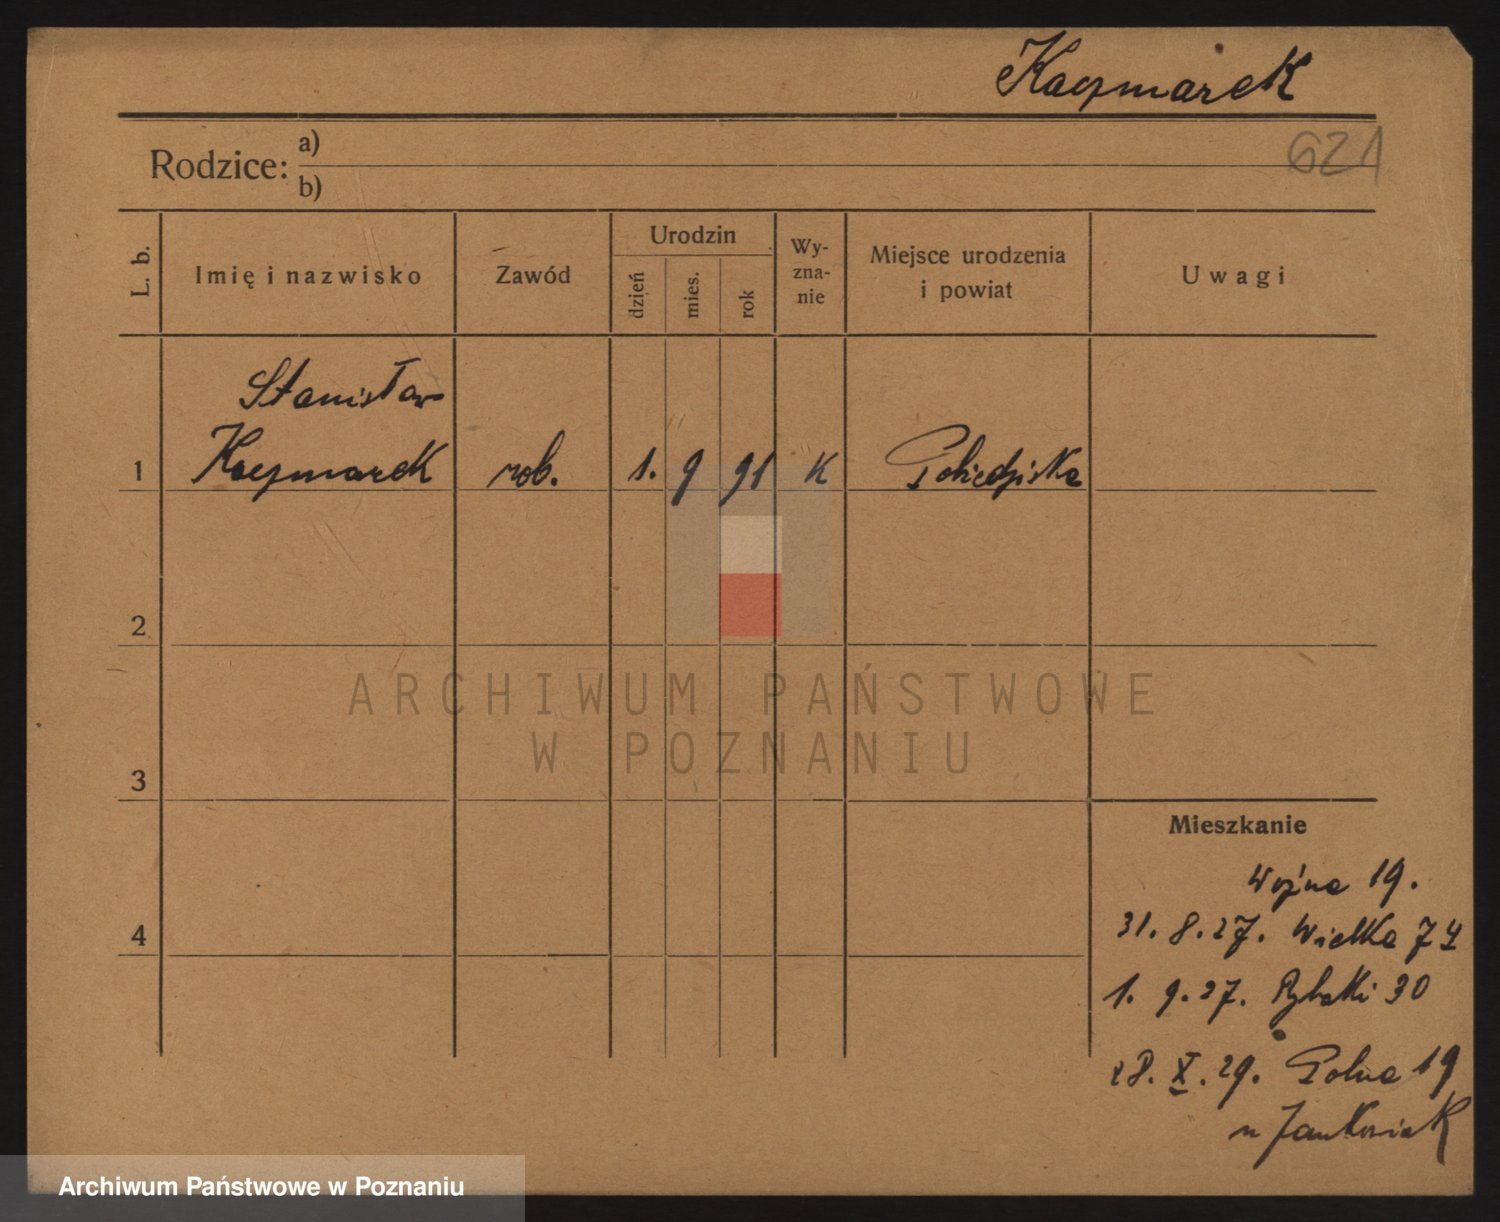 Kaczmarek
621
Rodzice: a)
b)
L. b.
Imię i nazwisko
Zawód
Urodzin
dzień
mies.
rok
Wy-
zna-
nie
Miejsce urodzenia
i powiat
Uwagi
Stanisław
1 Kaczmarek rob. 1. 9 91 K Pobiedziska
2
3
4
Mieszkanie
Wojna 19.
31. 8. 27. Wielka 74
1. 9. 27. Rybaki 30
28. X. 29. Polna 19
u Jankowiak
ARCHIWUM PAŃSTWOWE
W POZNANIU
Archiwum Państwowe w Poznaniu